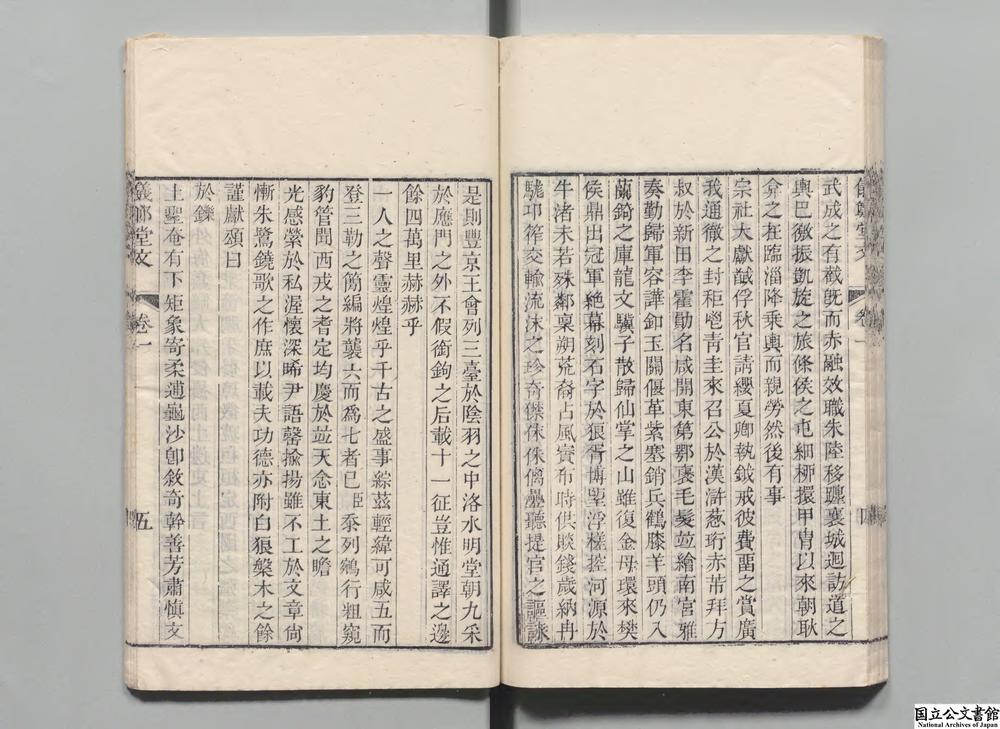 武成之有截旣而赤融效職朱陸移躔襄城迴訪道之
輿巴徼振凱旋之旅條侯之屯細柳擐甲胄以來朝耿
弇之在臨淄降乘輿而親勞然後有事
宗社大獻馘俘秋官請纓夏卿執鉞戒彼費畱之賞廣
我通徹之封秬鬯靑圭來召公於漢滸蔥珩赤芾拜方
叔於新田李霍勳名咸開東第鄂褒毛髮竝繪南宮雅
奏勤歸軍容譁釦玉關偃革紫塞銷兵鶴膝羊頭仍入
蘭錡之庫龍文驥子散歸仙掌之山雖復金母環來樊
侯鼎出冠軍絶幕刻石字於狼胥博望浮槎控河源於
牛渚未若殊鄰稟朔荒裔占風賨布時供賧錢歲納冉
駹卭筰交輸流沫之珍奇傑休侏僸疊聽提官之謳詠
儀鄭堂文
卷一
四
是則豐京王會列三臺於陰羽之中洛水明堂朝九采
於應門之外不假銜鉤之后載十一征豈惟通譯之邊
餘四萬里赫赫乎
一人之聲靈煌煌乎千古之盛事綜茲輕緯可咸五而
登三勒之簡編將襲六而爲七者已臣忝列鵷行粗窺
豹管聞西戎之耆定均慶於竝天念東土之瞻
光感縈於私渥懷深晞尹語罄揄揚雖不工於文章尙
慚朱鷺鐃歌之作庶以載夫功德亦附白狼槃木之餘
謹獻頌曰
於鑠
主聖奄有下矩象寄柔逋龜沙卽敘奇幹善芳肅愼文
儀鄭堂文
卷一
五
国立公文書館
National Archives of Japan